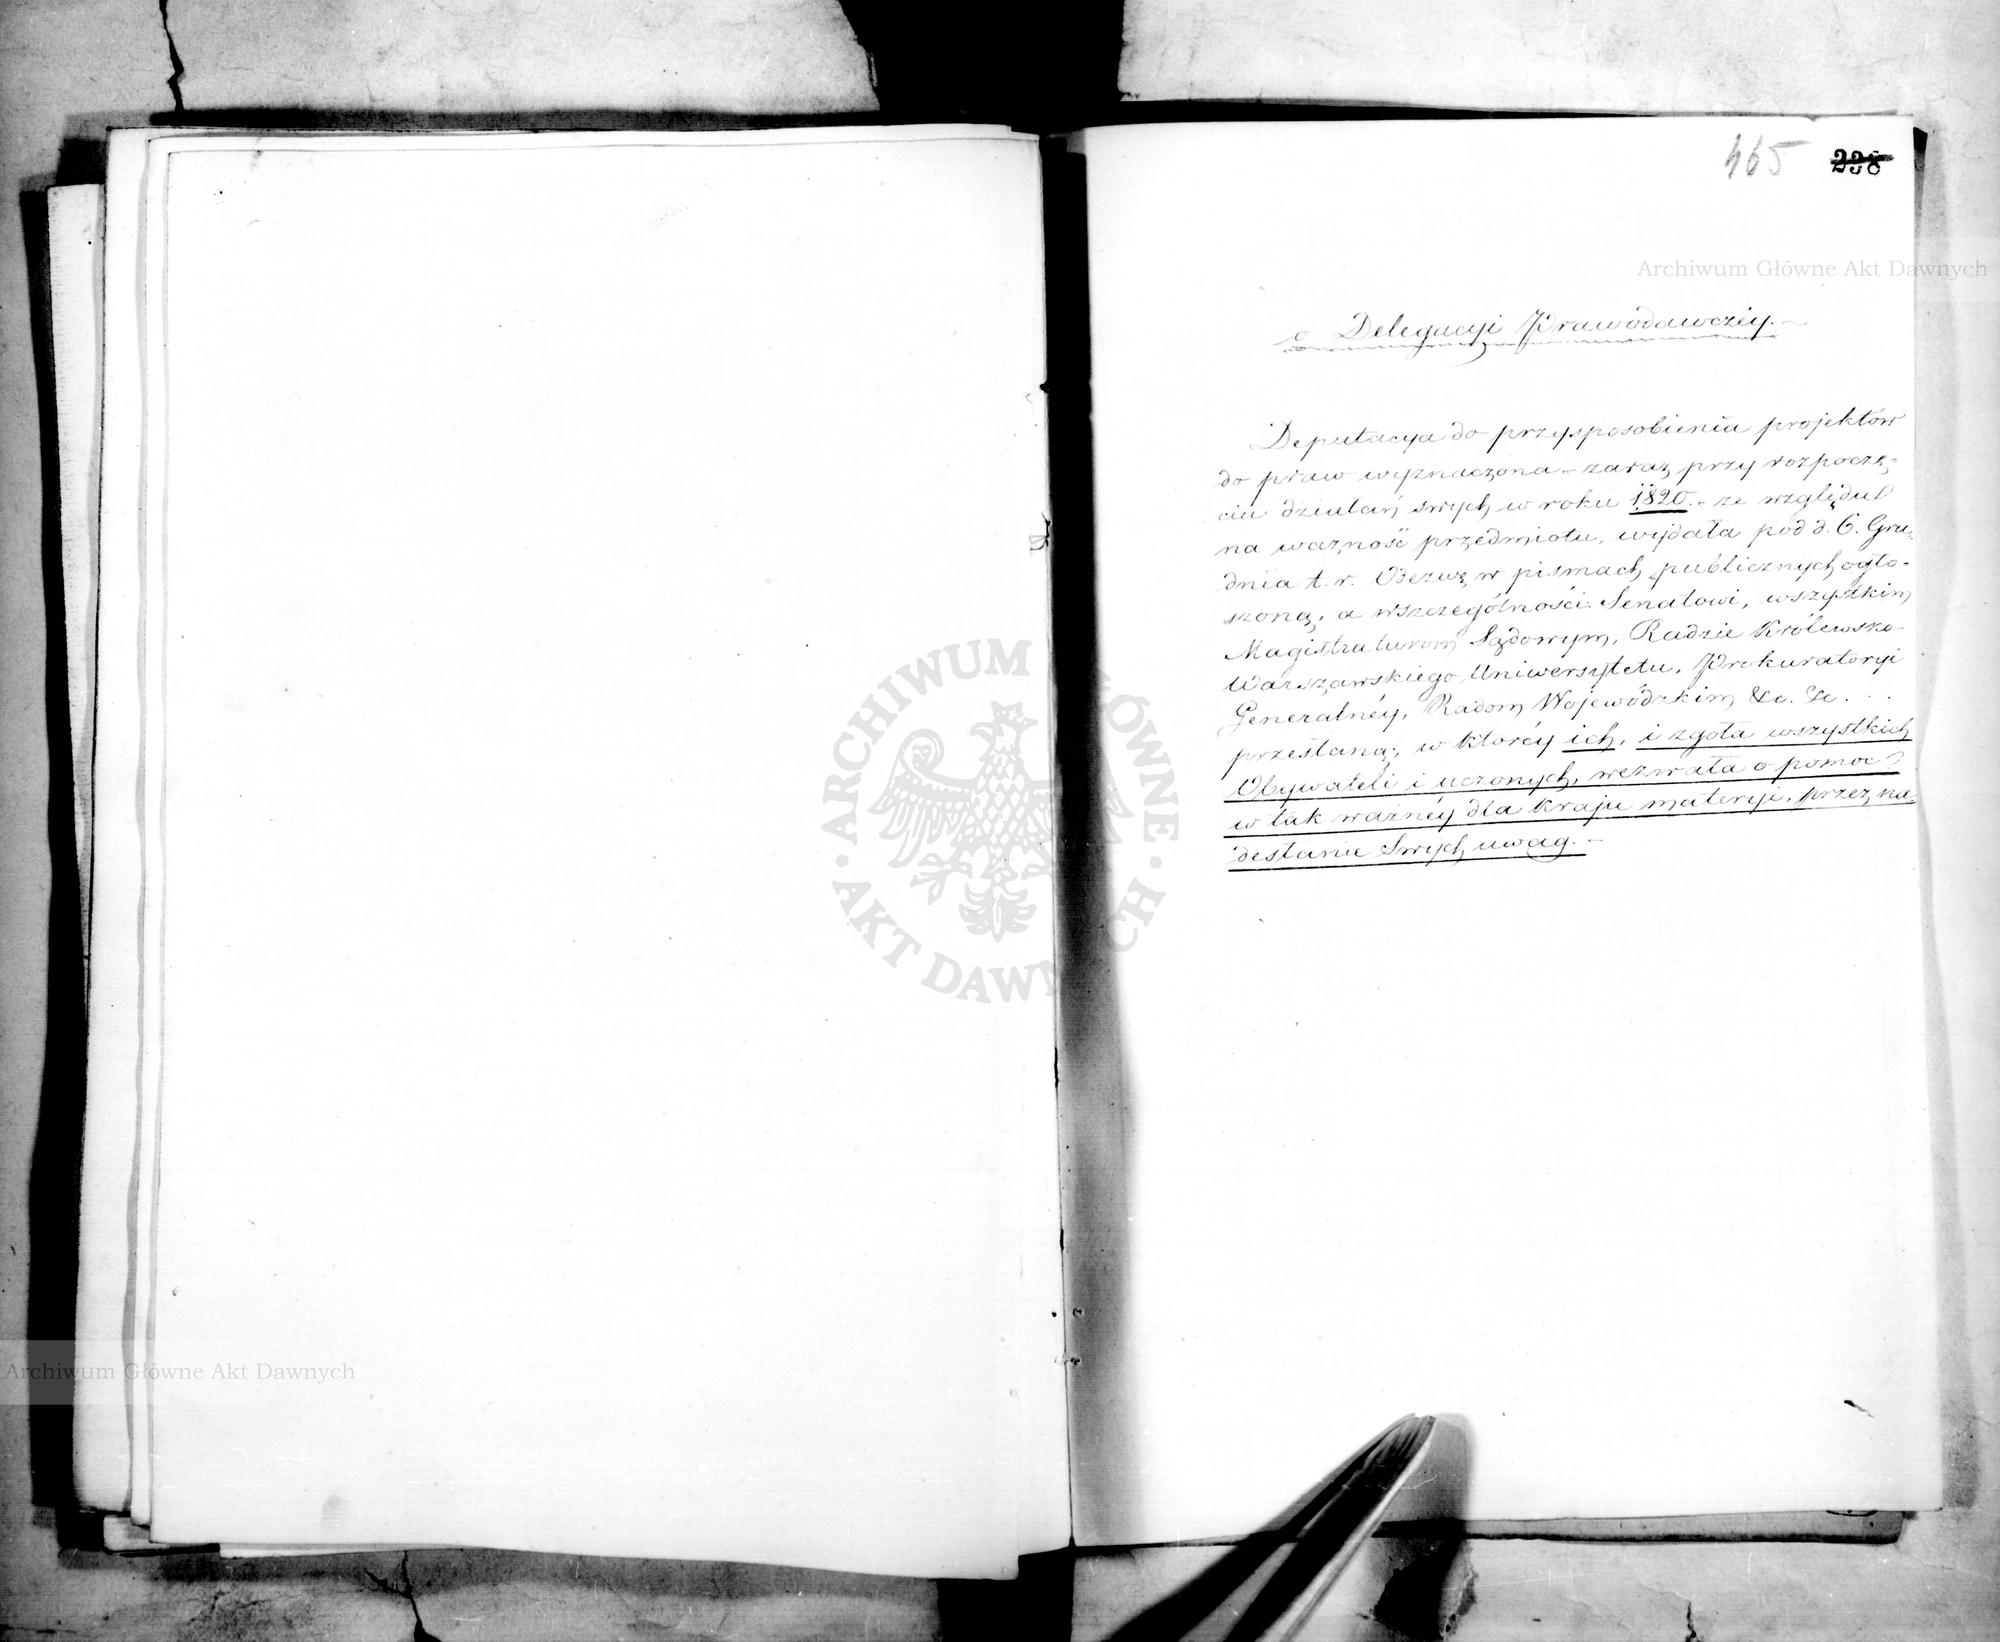 465 238
Archiwum Główne Akt Dawnych
o Delegacyi Prawodawczéy.
Deputacya do przysposobienia projektów
do praw wyznaczona – zaraz przy rozpoczę-
ciu działań swych w roku 1820. – ze względu
na ważność przedmiotu, wydała pod d. 6. Gru-
dnia t. r. Odezwę w pismach publicznych ogło-
szoną, a wszczególności Senatowi, wszystkim
Magistraturom Sądowym, Radzie Królewsko
Warszawskiego Uniwersytetu, Prokuratoryi
Generalnéy, Radom Wojewódzkim &c. &c. . .
przesłaną, w ktoréy ich, i zgoła wszystkich
Obywateli i uczonych, wezwała o pomoc
w tak ważnéy dla kraju materyi, przez na-
desłanie Swych uwag. –
ARCHIWUM GŁÓWNE
AKT DAWNYCH
Archiwum Główne Akt Dawnych